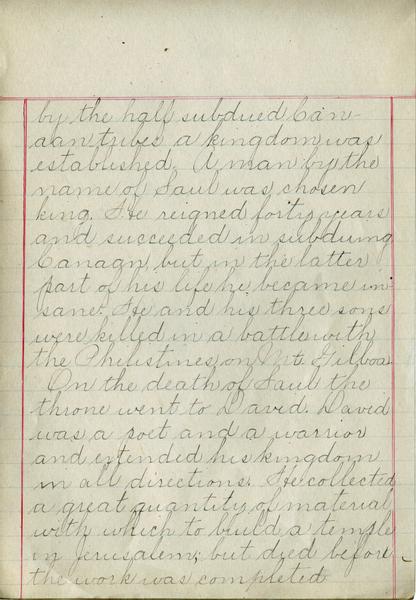 by the half subdued Can-
aan tribes a kingdom was
established. A man by the
name of Saul was chosen
king. He reigned forty years
and succeeded in subduing
Canaan, but in the latter
part of his life he became in-
sane. He and his three sons
were killed in a battle with
the Philistines on Mt. Gilboa.
On the death of Saul the
throne went to David. David
was a poet and a warrior
and extended his kingdom
in all directions. He collected
a great quantity of material
with which to build a temple
in Jerusalem; but died before
the work was completed